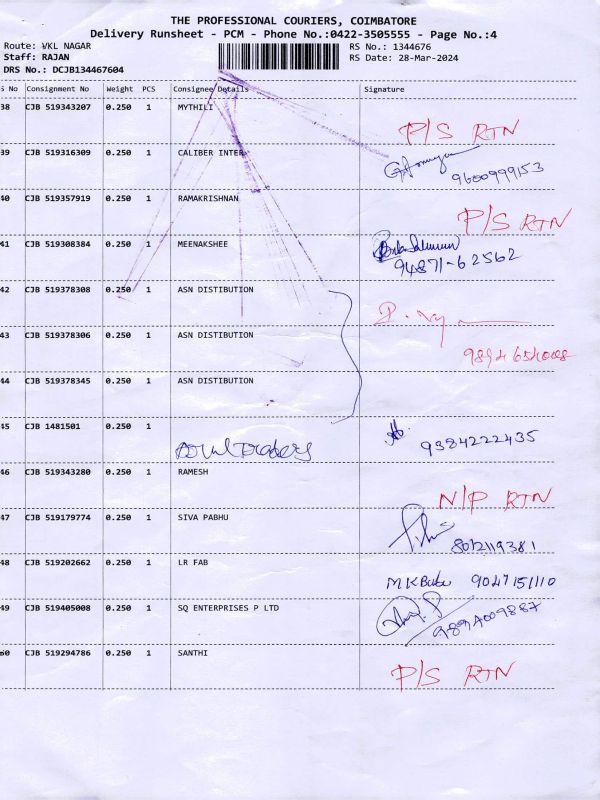 THE PROFESSIONAL COURIERS, COIMBATORE
Delivery Runsheet - PCM - Phone No.:0422-3505555 - Page No.:4
Route: VKL NAGAR
RS No.: 1344676
Staff: RAJAN
RS Date: 28-Mar-2024
DRS No.: DCJB134467604
S No Consignment No Weight PCS Consignee Details Signature
38 CJB 519343207 0.250 1 MYTHILI
P/S RTN
39 CJB 519316309 0.250 1 CALIBER INTER
9600999153
40 CJB 519357919 0.250 1 RAMAKRISHNAN
P/S RTN
41 CJB 519308384 0.250 1 MEENAKSHEE
94871-62562
42 CJB 519378308 0.250 1 ASN DISTIBUTION
43 CJB 519378306 0.250 1 ASN DISTIBUTION
44 CJB 519378345 0.250 1 ASN DISTIBUTION
45 CJB 1481501 0.250 1
Traders
9384222435
46 CJB 519343280 0.250 1 RAMESH
N/P RTN
47 CJB 519179774 0.250 1 SIVA PABHU
8012119381
48 CJB 519202662 0.250 1 LR FAB
MK Babu 9047151110
49 CJB 519405008 0.250 1 SQ ENTERPRISES P LTD
9894009887
50 CJB 519294786 0.250 1 SANTHI
P/S RTN